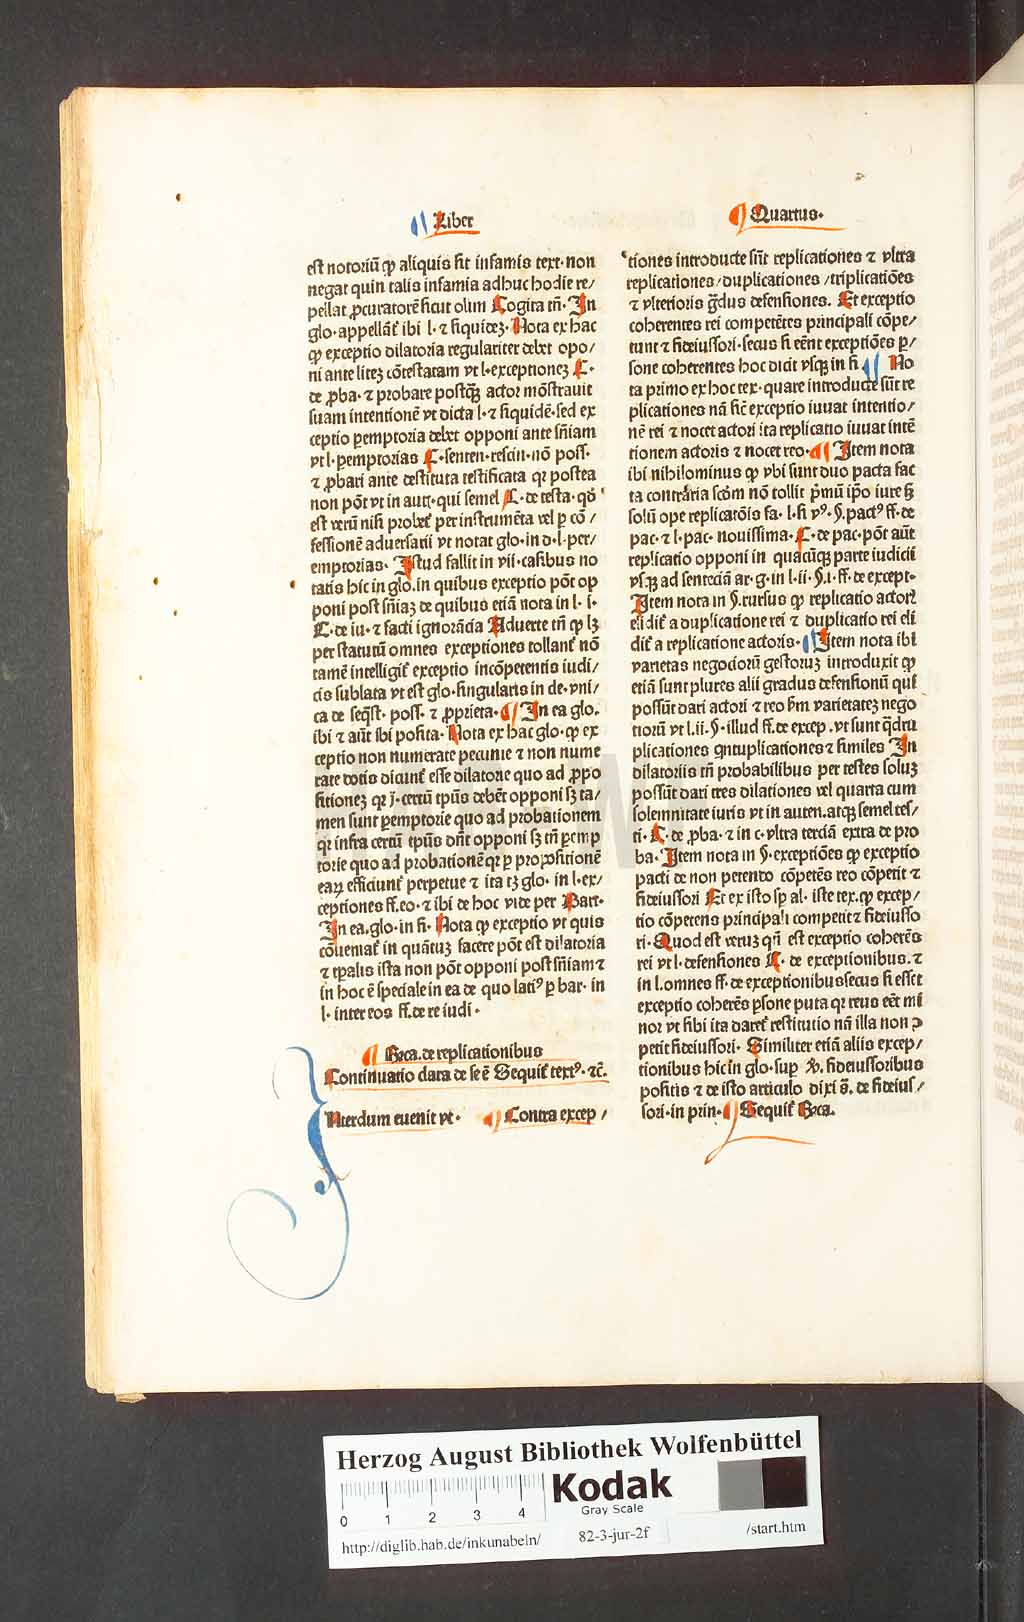 ¶ Liber
¶ Quartus.
est notoriū ꝙ aliquis sit infamis text. non
negat quin talis infamia adhuc hodie re/
pellat ꝓcuratorē sicut olim Cogita tn̄. In
glo. appellāt᷑ ibi l. ⁊ siquideꝫ. Nota ex hac
ꝙ exceptio dilatoria regulariter debet opo/
ni ante liteꝫ cōtestatam vt l. exceptioneꝫ C.
de ꝓba. ⁊ probare postꝙ̄ actor mōstrauit
suam intentionē vt dicta l. ⁊ siquidē. sed ex
ceptio ꝑemptoria debet opponi ante sn̄iam
vt l. ꝑemptorias C. senten. rescin. nō poss.
⁊ ꝓbari ante destituta testificata qꝛ postea
non pōt vt in autꝭ. qui semel C. de testa. qd̄
est verū nisi probet᷑ per instrumēta vel ꝑ cō/
fessionē aduersarii vt notat glo. in d. l. per/
emptorias. Istud fallit in vii. casibus no
tatis hic in glo. in quibus exceptio pōt op
poni post sn̄iaꝫ de quibus etiā nota in l. i.
C. de iu. ⁊ facti ignorācia Aduerte tn̄ ꝙ lꝫ
per statutū omnes exceptiones tollant᷑ nō
tamē intelligit᷑ exceptio incōpetentis iudi/
cis sublata vt est glo. singularis in de. vni/
ca de seq̄st. poss. ⁊ ꝓprieta. ¶ In ea glo.
ibi ⁊ aūt ibi posita. Nota ex hac glo. ꝙ ex
ceptio non numerate pecunie ⁊ non nume
rate dotis dicunt᷑ esse dilatorie quo ad ꝓpo
sitioneꝫ qꝛ j. certū tp̄us debēt opponi sꝫ ta/
men sunt ꝑemptorie quo ad probationem
qꝛ infra certū tp̄us dn̄t opponi sꝫ tn̄ ꝑemp
torie quo ad probationē qꝛ ꝑ propositionē
eaꝝ efficiunt᷑ perpetue ⁊ ita tꝫ glo. in l. ex/
ceptiones ff. eo. ⁊ ibi de hoc vide per Bart.
In ea. glo. in fi. Nota ꝙ exceptio vt quis
cōueniat᷑ in quātuꝫ facere pōt est dilatoria
⁊ tꝑalis ista non pōt opponi post sn̄iam ⁊
in hoc ē speciale in ea de quo latiꝰ ꝑ bar. in
l. inter eos ff. de re iudi.
¶ Rͨca. de replicationibus
Continuatio data de se ē Sequit᷑ textꝰ. ⁊c̄.
INterdum euenit vt. ¶ Contra excep/
tiones introducte sūt replicationes ⁊ vltra
replicationes/duplicationes/triplicatiōes
⁊ vlterioris g̈dus defensiones. Et exceptio
coherentes rei competētes principali cōpe/
tunt ⁊ fideiussori. secus si eēnt exceptiōes ꝑ/
sone coherentes hoc dicit vsꝙ in fi. ¶ No
ta primo ex hoc tex. quare introducte sūt re
plicationes nā sic̄ exceptio iuuat intentio/
nē rei ⁊ nocet actori ita replicatio iuuat intē
tionem actoris ⁊ nocet reo. ¶ Item nota
ibi nihilominus ꝙ vbi sunt duo pacta fac
ta contraria scd̄m nō tollit pͥmū ip̄o iure sꝫ
solū ope replicatōis fa. l. si vꝰ. §. pactꝰ ff. de
pac. ⁊ l. pac. nouissima. C. de pac. pōt aūt
replicatio opponi in quacūqꝫ parte iudicii
vsqꝫ ad sentēciā ar. g. in l. ii. §. i. ff. de except.
Item nota in §. rursus ꝙ replicatio actorꝭ
elidit᷑ a duplicatione rei ⁊ duplicatio rei eli
dit᷑ a replicatione actoris. ¶ Item nota ibi
varietas negociorū gestoruꝫ introduxit ꝙ
etiā sunt plures alii gradus defensionū qui
possūt dari actori ⁊ reo ẜm varietateꝫ nego
tiorū vt l. ii. §. illud ff. de excep. vt sunt q̈dru
plicationes q̄ntuplicationes ⁊ similes In
dilatoriis tn̄ probabilibus per testes soluꝫ
possūt dari tres dilationes vel quarta cum
solemnitate iuris vt in auten. atqꝫ semel tes/
ti. C. de ꝓba. ⁊ in c. vltra terciā extra de pro
ba. Item nota in §. exceptiōes ꝙ exceptio
pacti de non petendo cōpetēs reo cōpetit ⁊
fideiussori Et ex isto sp̄al. iste tex. ꝙ excep/
tio cōpetens principali competit ⁊ fideiusso
ri. Quod est veruꝫ qn̄ est exceptio coherēs
rei vt l. defensiones C. de exceptionibus. ⁊
in l. omnes ff. de exceptionibus secus si esset
exceptio coherēs ꝑsone puta qꝛ reus eēt mi
nor vt sibi ita daret᷑ restitutio nā illa non ꝯ
petit fideiussori. Similiter etiā aliis excep/
tionibus hic in glo. suꝑ ꝟ. fideiussoribus
positis ⁊ de isto articulo dixi s̄. de fideius/
sori. in prin. ¶ Sequit᷑ Rͨca.
Herzog August Bibliothek Wolfenbüttel
Kodak
Gray Scale
0 1 2 3 4
http://diglib.hab.de/inkunabeln/ 82-3-jur-2f /start.htm